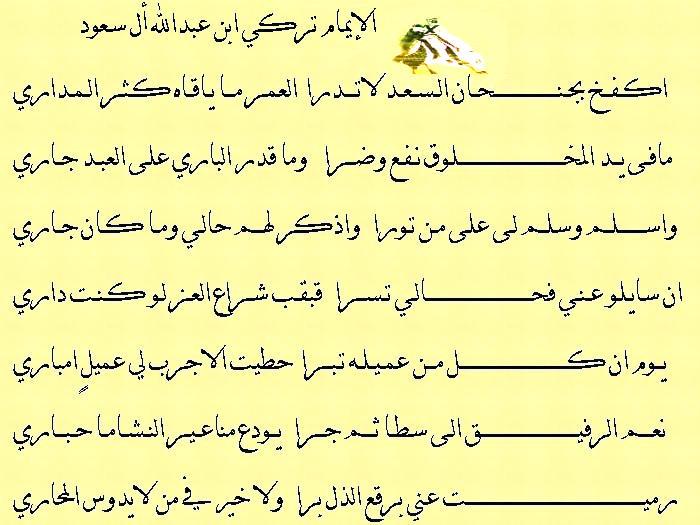 الإيمام تركي ابن عبدالله أل سعود
اكفخ بجنحان السعد لا تدرا العمر ما ياقاه كثر المداري
مافى يد المخلوق نفع وضرا وما قدر الباري على العبد جاري
واسلم وسلم لى على من تورا واذكر لهم حالي وما كان جاري
ان سايلو عني فحالي تسرا قبقب شراع العز لو كنت داري
يوم ان كل من عميله تبرا حطيت الاجرب لي عميلٍ امباري
نعم الرفيق الى سطا ثم جرا يودع مناعير النشاما حباري
رميت عني برقع الذل برا ولا خير في من لا يدوس المحاري